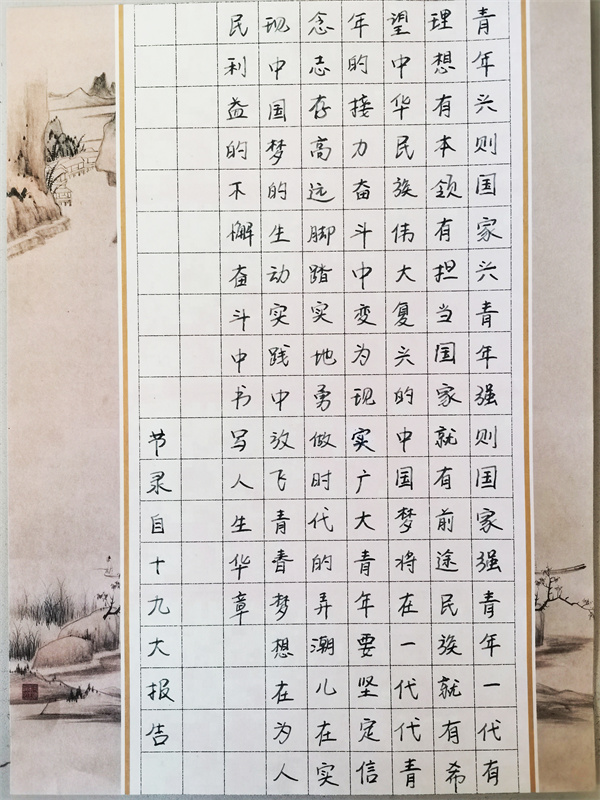 青年兴则国家兴青年强则国家强青年一代有
理想有本领有担当国家就有前途民族就有希
望中华民族伟大复兴的中国梦将在一代代青
年的接力奋斗中变为现实广大青年要坚定信
念志存高远脚踏实地勇做时代的弄潮儿在实
现中国梦的生动实践中放飞青春梦想在为人
民利益的不懈奋斗中书写人生华章
节录自十九大报告